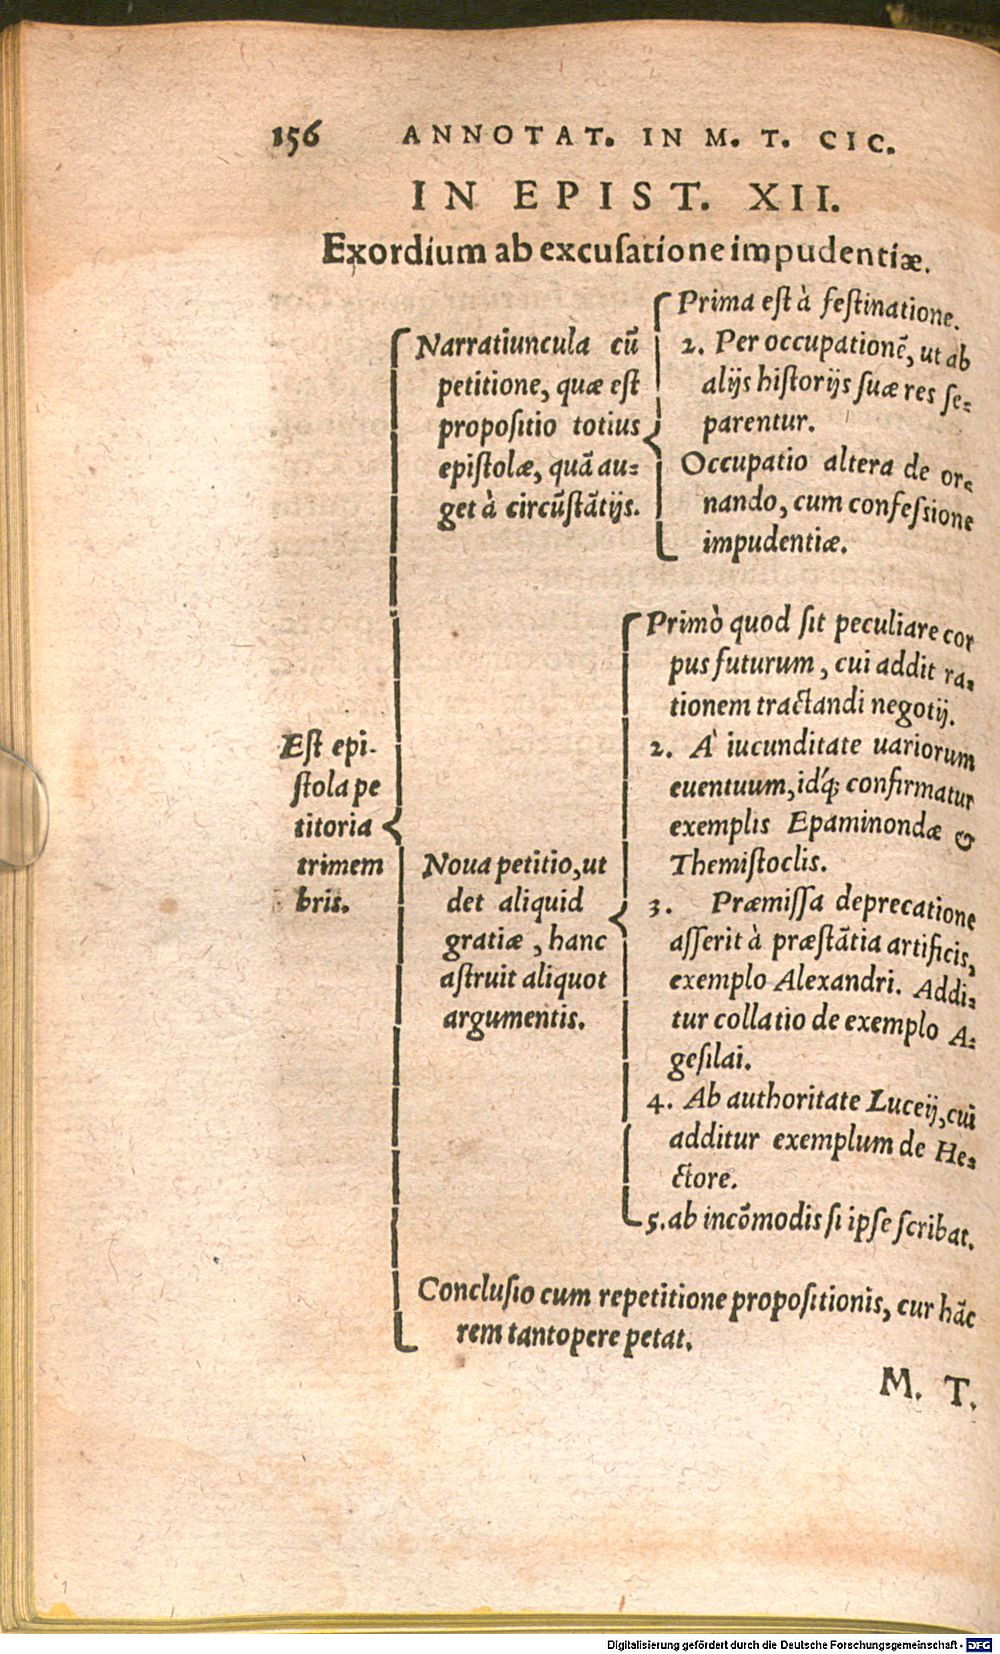 156 ANNOTAT. IN M. T. CIC.
IN EPIST. XII.
Exordium ab excuſatione impudentiæ.
Eſt epi-
ſtola pe
titoria
trimem
bris.
Narratiuncula cū
petitione, quæ eſt
propoſitio totius
epiſtolæ, quā au-
get à circūſtātijs.
Prima eſt à feſtinatione.
2. Per occupationē, ut ab
alijs hiſtorijs ſuæ res ſe-
parentur.
Occupatio altera de or-
nando, cum confeſsione
impudentiæ.
Noua petitio, ut
det aliquid
gratiæ, hanc
aſtruit aliquot
argumentis.
Primò quod ſit peculiare cor
pus futurum, cui addit ra-
tionem tractandi negotij.
2. À iucunditate uariorum
euentuum, idq́; confirmatur
exemplis Epaminondæ &
Themiſtoclis.
3. Præmiſſa deprecatione
aſſerit à præſtātia artificis,
exemplo Alexandri. Addi-
tur collatio de exemplo A-
geſilai.
4. Ab authoritate Lucеij, cui
additur exemplum de He-
ctore.
5. ab incōmodis ſi ipſe ſcribat.
Concluſio cum repetitione propoſitionis, cur hāc
rem tantopere petat.
M. T.
Digitalisierung gefördert durch die Deutsche Forschungsgemeinschaft - DFG